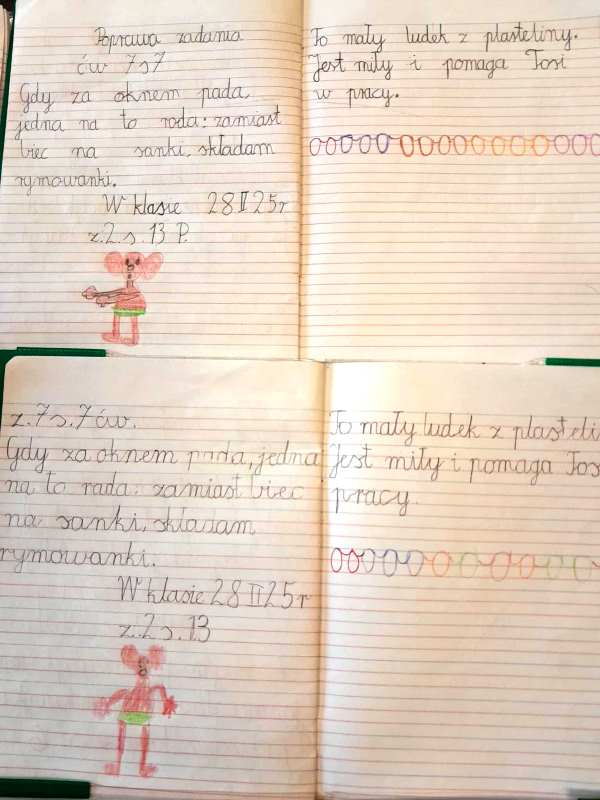 Poprawa zadania
ćw 7 s 7
Gdy za oknem pada,
jedna na to roda: zamiast
biec na sanki, składam
rymowanki.
W klasie 28 II 25r
z. 2. s. 13 P.
To mały ludek z plasteliny.
Jest miły i pomaga Tosi
w pracy.
z. 7 s. 7 ćw.
Gdy za oknem pada, jedna
na to rada: zamiast biec
na sanki, skłasam
rymowanki.
W klasie 28 II 25r
z. 2 s. 13
To mały ludek z plasteli
Jest miły i pomaga Tos
pracy.